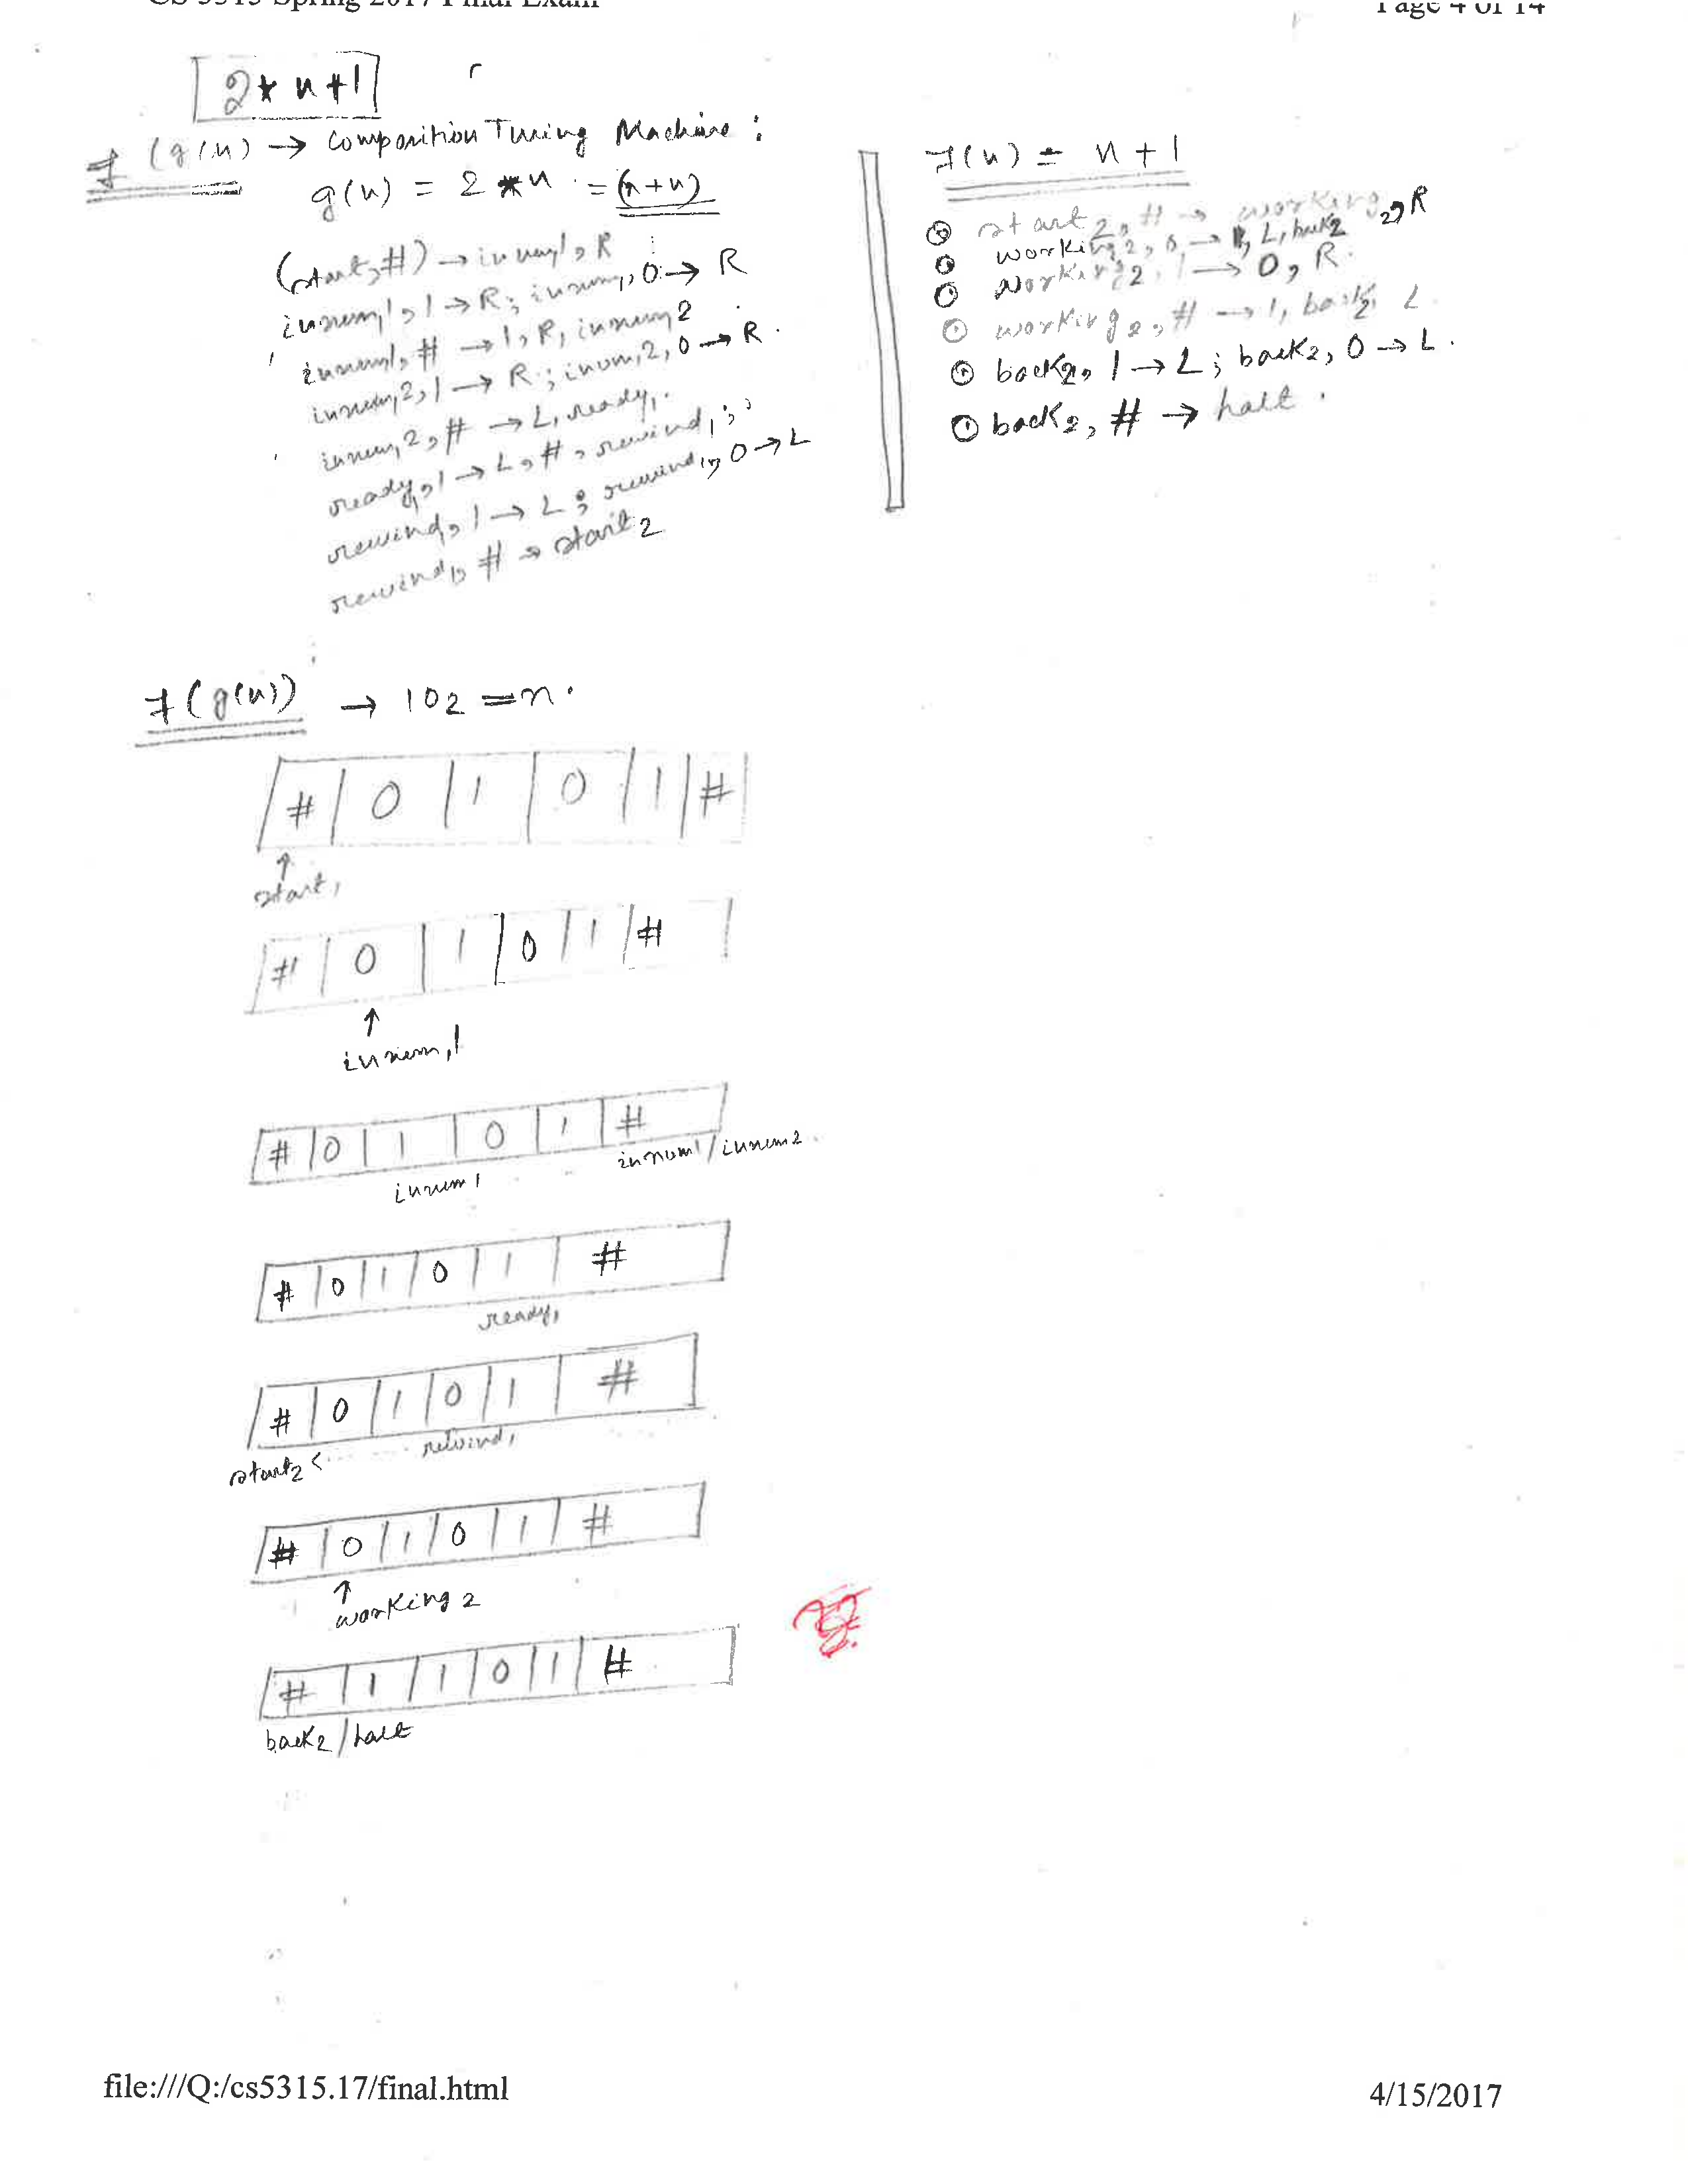 CS 5315 Spring 2017 Final Exam Page 4 of 14
2 * n + 1
f (g(n) → Composition Turing Machine :
g(n) = 2 * n = (n+n)
(start, #) → innum1, R
innum1, 1 → R; innum1, 0 → R
innum1, # → 1, R, innum2
innum,2, 1 → R; innum,2, 0 → R.
innum,2, # → L, ready1.
ready1, 1 → L, #, rewind1;
rewind1, 1 → L; rewind1, 0 → L
rewind1, # → start2
f(n) = n + 1
start2, # → working2, R
working2, 0 → 1, L, back2
working2, 1 → 0, R.
working2, # → 1, back2 L
back2, 1 → L; back2, 0 → L.
back2, # → halt.
f(g(n)) → 10₂ = n.
# 0 1 0 1 #
↑
start1
# 0 1 0 1 #
↑
innum,1
# 0 1 0 1 #
innum1 innum1/innum2.
# 0 1 0 1 #
ready1
# 0 1 0 1 #
start2 < rewind1
# 0 1 0 1 #
↑
working 2
# 1 1 0 1 #
back2/halt
file:///Q:/cs5315.17/final.html 4/15/2017